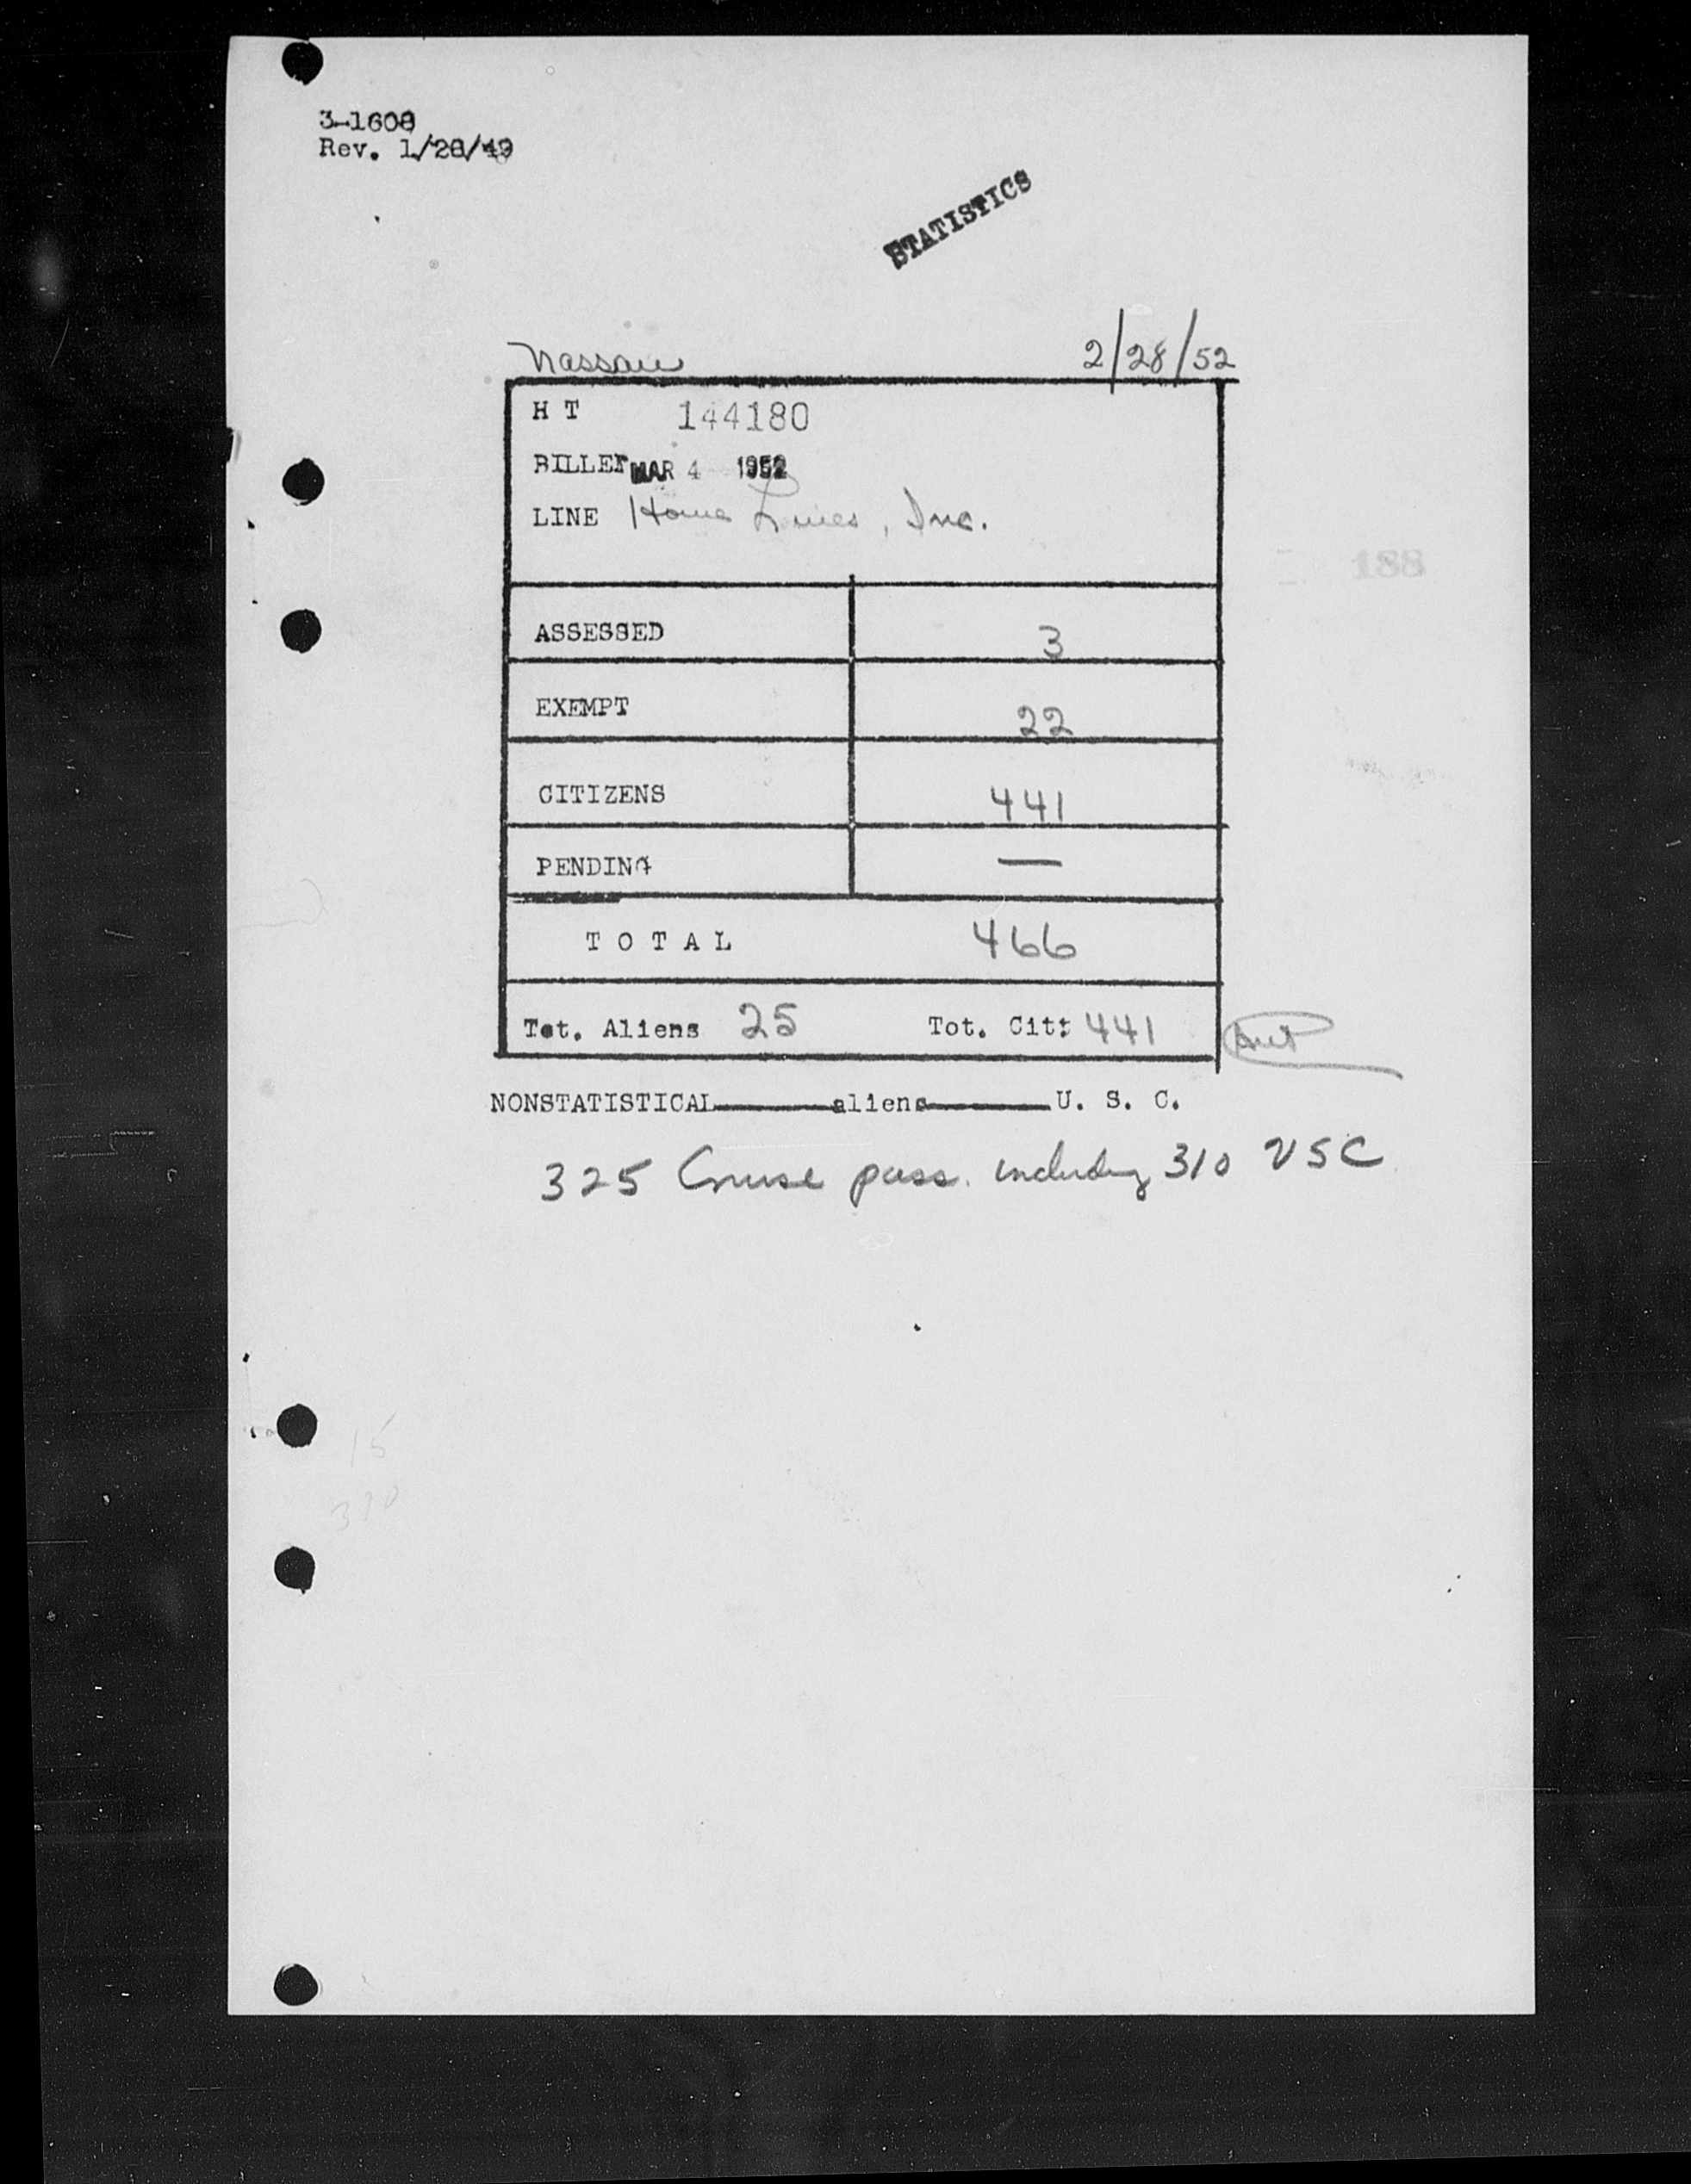 3-1608
Rev. 1/28/49
STATISTICS
Nassau 2/28/52
H T 144180
BILLET MAR 4 1952
LINE Home Lines, Inc.
188
ASSESSED 3
EXEMPT 22
CITIZENS 441
PENDING —
TOTAL 466
Tot. Aliens 25 Tot. Cit: 441
NONSTATISTICAL aliens U. S. C.
325 Cruise pass. including 310 USC
15
310